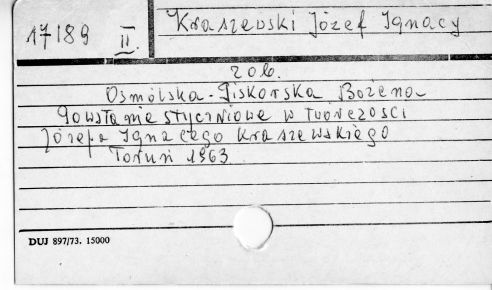 17189 II.
Kraszewski Józef Ignacy
zob.
Osmólska-Piskorska Bożena
Powstanie styczniowe w twórczości
Józefa Ignacego Kraszewskiego
Toruń 1963
DUJ 897/73. 15000